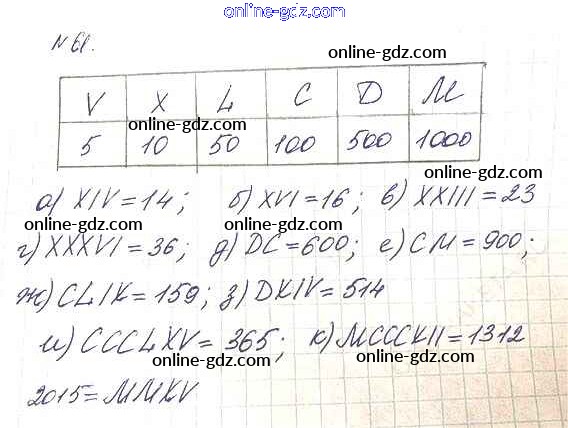 online-gdz.com
N 61.
online-gdz.com
V X L C D M
online-gdz.com online-gdz.com
5 10 50 100 500 1000
а) XIV = 14; б) XVI = 16; в) XXIII = 23
online-gdz.com online-gdz.com
г) XXXVI = 36; д) DC = 600; е) CM = 900;
online-gdz.com online-gdz.com
ж) CLIX = 159; з) DXIV = 514
и) CCCLXV = 365; к) MCCCXII = 1312
online-gdz.com online-gdz.com
2015 = MMXV